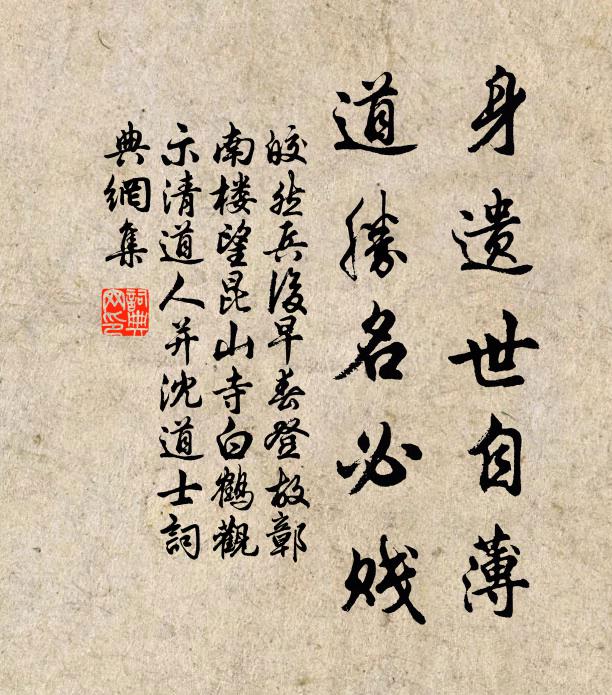 身遗世自薄
道勝名必贱
皎然兵後早春登故鄣
南楼望昆山寺白鶴觀
示清道人并沈道士詞
典網集
詞典
网印